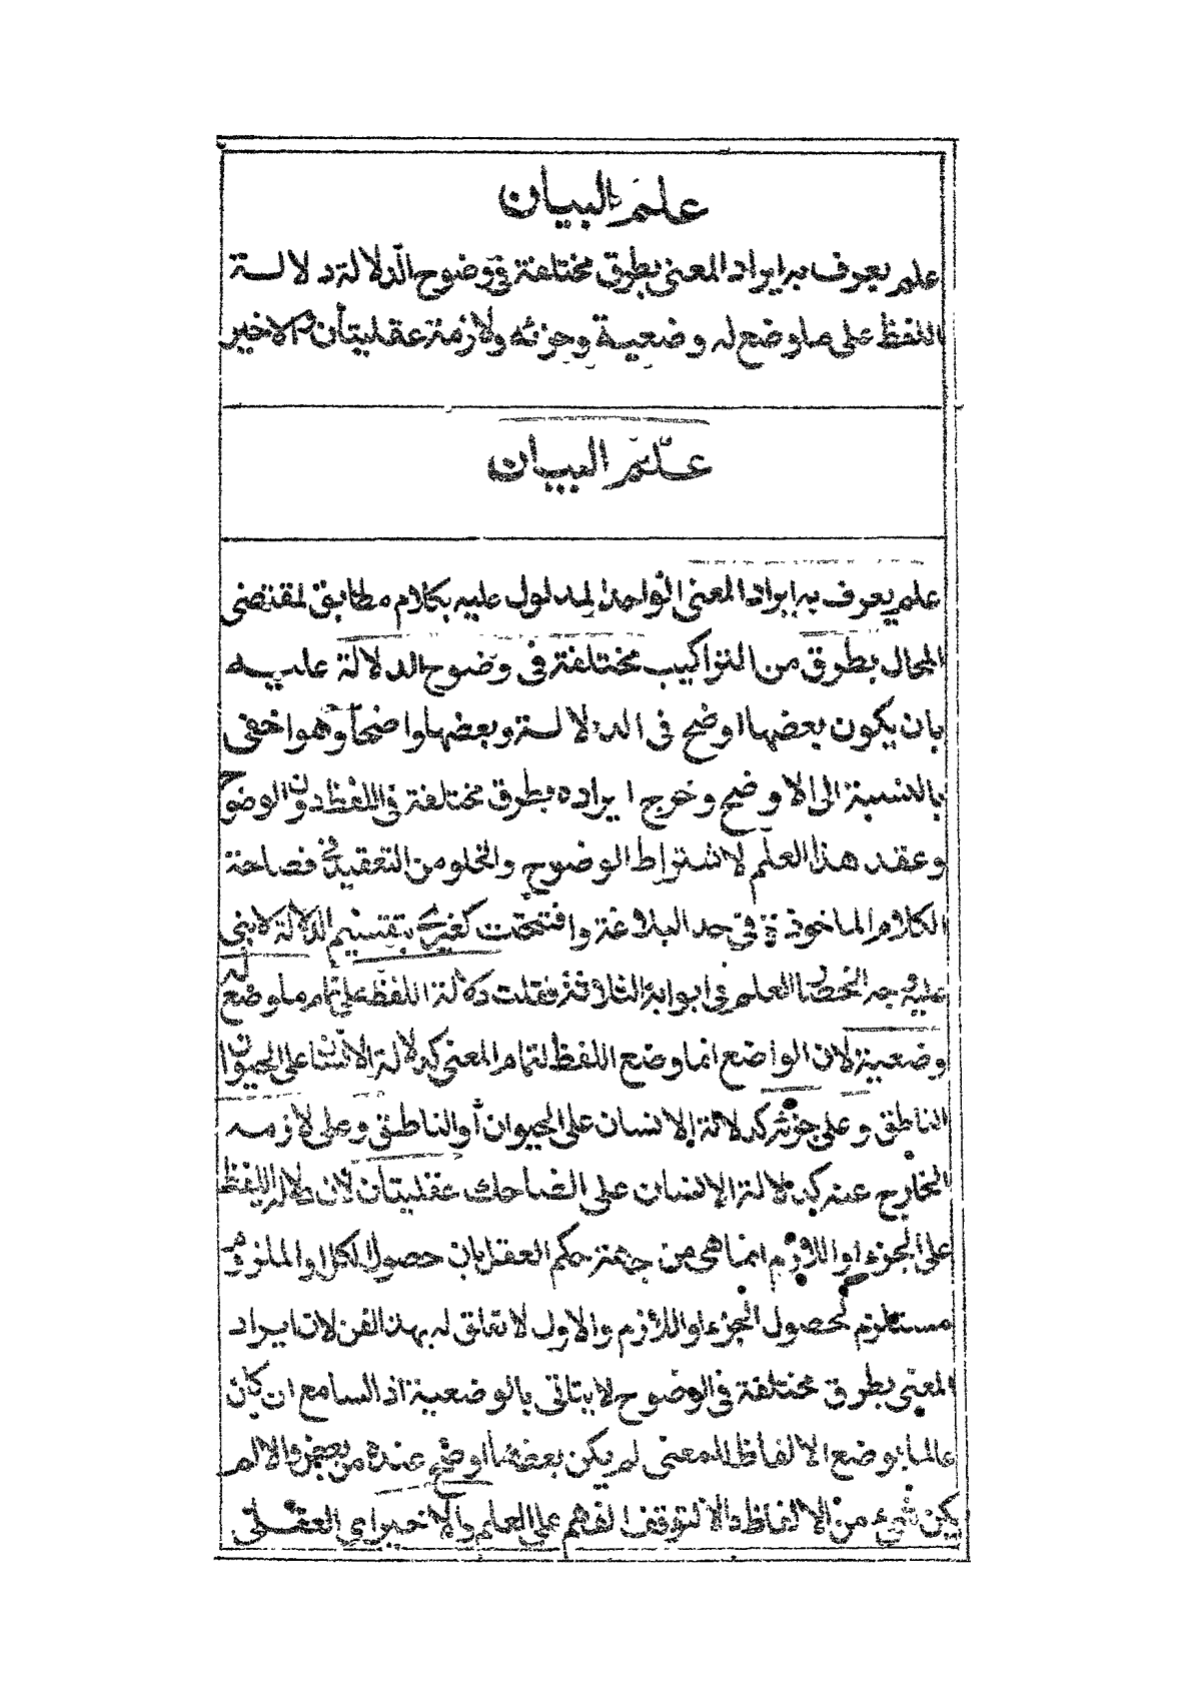 علم البيان
علم يعرف به ايراد المعنى بطرق مختلفة في وضوح الدلالة دلالة
اللفظ على ما وضع له وضعية وجزئه ولازمة عقليتان والاخير
علم البيان
علم يعرف به ايراد المعنى الواحد المدلول عليه بكلام مطابق لمقتضى
الحال بطرق من التراكيب مختلفة في وضوح الدلالة عليه
بان يكون بعضها اوضح في الدلالة وبعضها واضحا وهو اخفى
بالنسبة الى الاوضح وخرج ايراده بطرق مختلفة في اللفظ دون الوضوح
وعقد هذا العلم لاشتراط الوضوح والخلو من التعقيد في فصاحة
الكلام الماخوذة في حد البلاغة وافتتحت كغيري بتقسيم الدلالة لابني
عليه وجه انحصار العلم في ابوابه الثلاثة فقلت دلالة اللفظ على تمام ما وضع له
وضعية لان الواضع انما وضع اللفظ لتمام المعنى كدلالة الانسان على الحيوان
الناطق وعلى جزئه كدلالة الانسان على الحيوان أو الناطق وعلى لازمه
الخارج عنه كدلالة الإنسان على الضاحك عقليتان لان دلالة اللفظ
على الجزء او اللازم انما هي من جهة حكم العقل بان حصول الكل او الملزوم
مستلزم لحصول الجزء او اللازم والاول لا تعلق له بهذا الفن لان ايراد
المعنى بطرق مختلفة في الوضوح لا يتاتى بالوضعية اذ السامع ان كان
عالما بوضع الالفاظ للمعنى لم يكن بعضها اوضح عنده من بعض والا لم
يكن شيء من الالفاظ دالا لتوقف الفهم على العلم والاخير اي العقلي